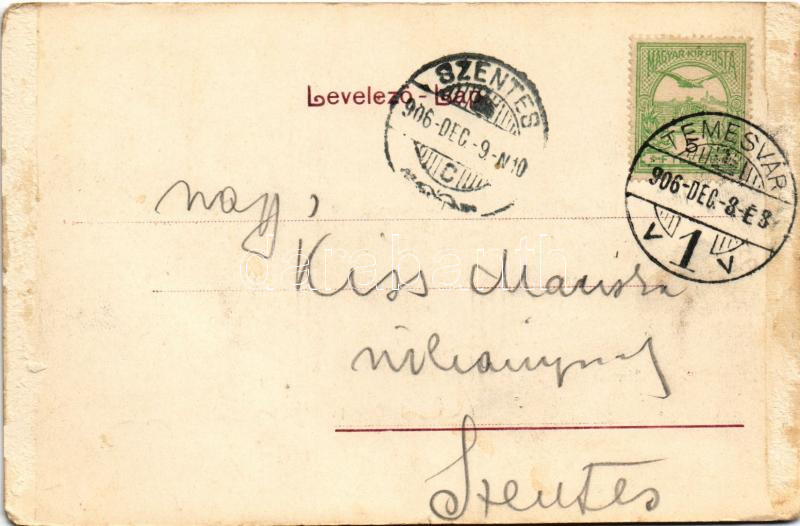 MAGYAR KIR. POSTA
Levelező-Lap
SZENTES
906-DEC.-9-N10
C
TEMESVÁR
906-DEC.-8-E8
1
nagys,
Kiss Mariska
úrleánynak
Szentes
darabanth